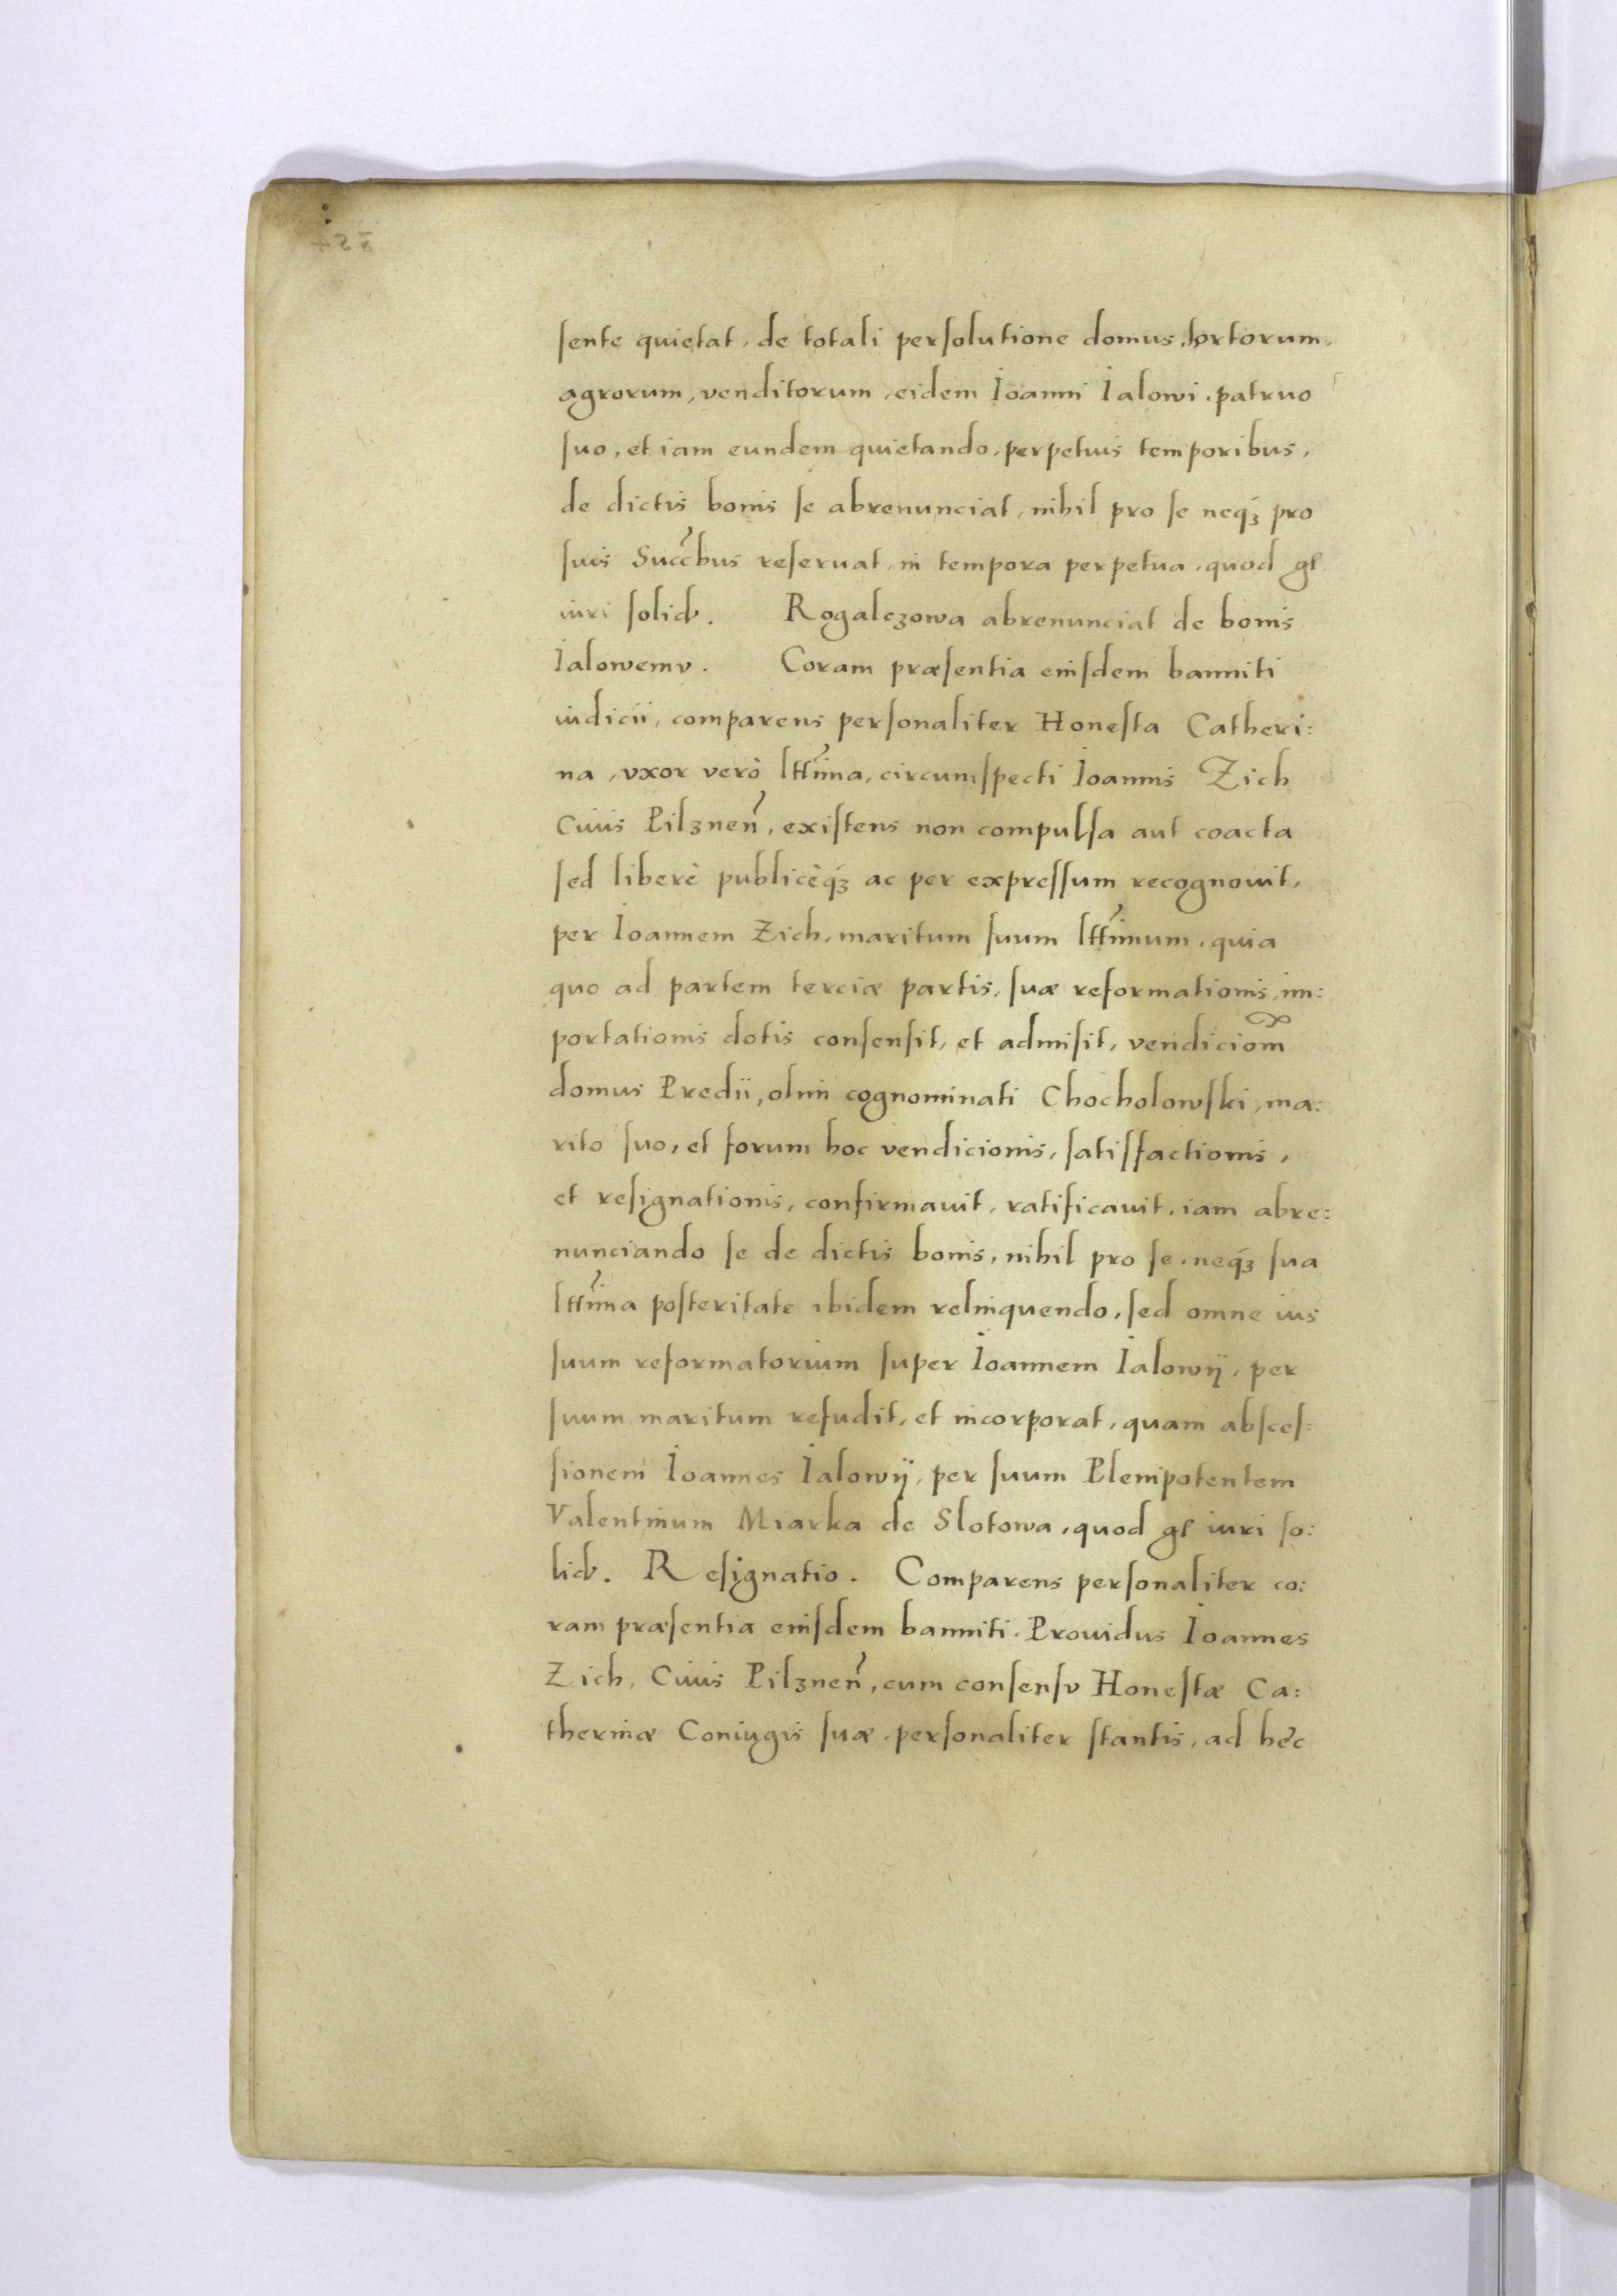 sente quietat, de totali persolutione domus, hortorum,
agrorum, venditorum, eidem Ioanni Ialowi, patruo
suo, et iam eundem quietando, perpetuis temporibus,
de dictis bonis se abrenunciat, nihil pro se neqꝫ pro
suis Succ̃bus reseruat, in tempora perpetua, quod gł
iuri solid. Rogalczowa abrenunciat de bonis
Ialowemv. Coram præsentia eiusdem banniti
iudicii, comparens personaliter Honesta Catheri:
na, vxor verò lttĩma, circumspecti Ioannis Zich
Ciuis Pilznen̄, existens non compulsa aut coacta
sed liberè publicèqꝫ ac per expressum recognouit,
per Ioannem Zich, maritum suum lttĩmum, quia
quo ad partem terciæ partis, suæ reformationis, im:
portationis dotis consensit, et admisit, vendiciom̄
domus Predii, olim cognominati Chocholowski, ma:
rito suo, et forum hoc vendicionis, satisfactionis,
et resignationis, confirmauit, ratificauit, iam abre:
nunciando se de dictis bonis, nihil pro se, neqꝫ sua
lttĩma posteritate ibidem relinquendo, sed omne ius
suum reformatorium super Ioannem Ialowÿ, per
suum maritum refudit, et incorporat, quam absces:
sionem Ioannes Ialowÿ, per suum Plenipotentem
Valentinum Miarka de Slotowa, quod gł iuri so:
lid. Resignatio. Comparens personaliter co:
ram præsentia eiusdem banniti. Prouidus Ioannes
Zich, Ciuis Pilznen̄, cum consensv Honestæ Ca:
therinæ Coniugis suæ, personaliter stantis, ad hec